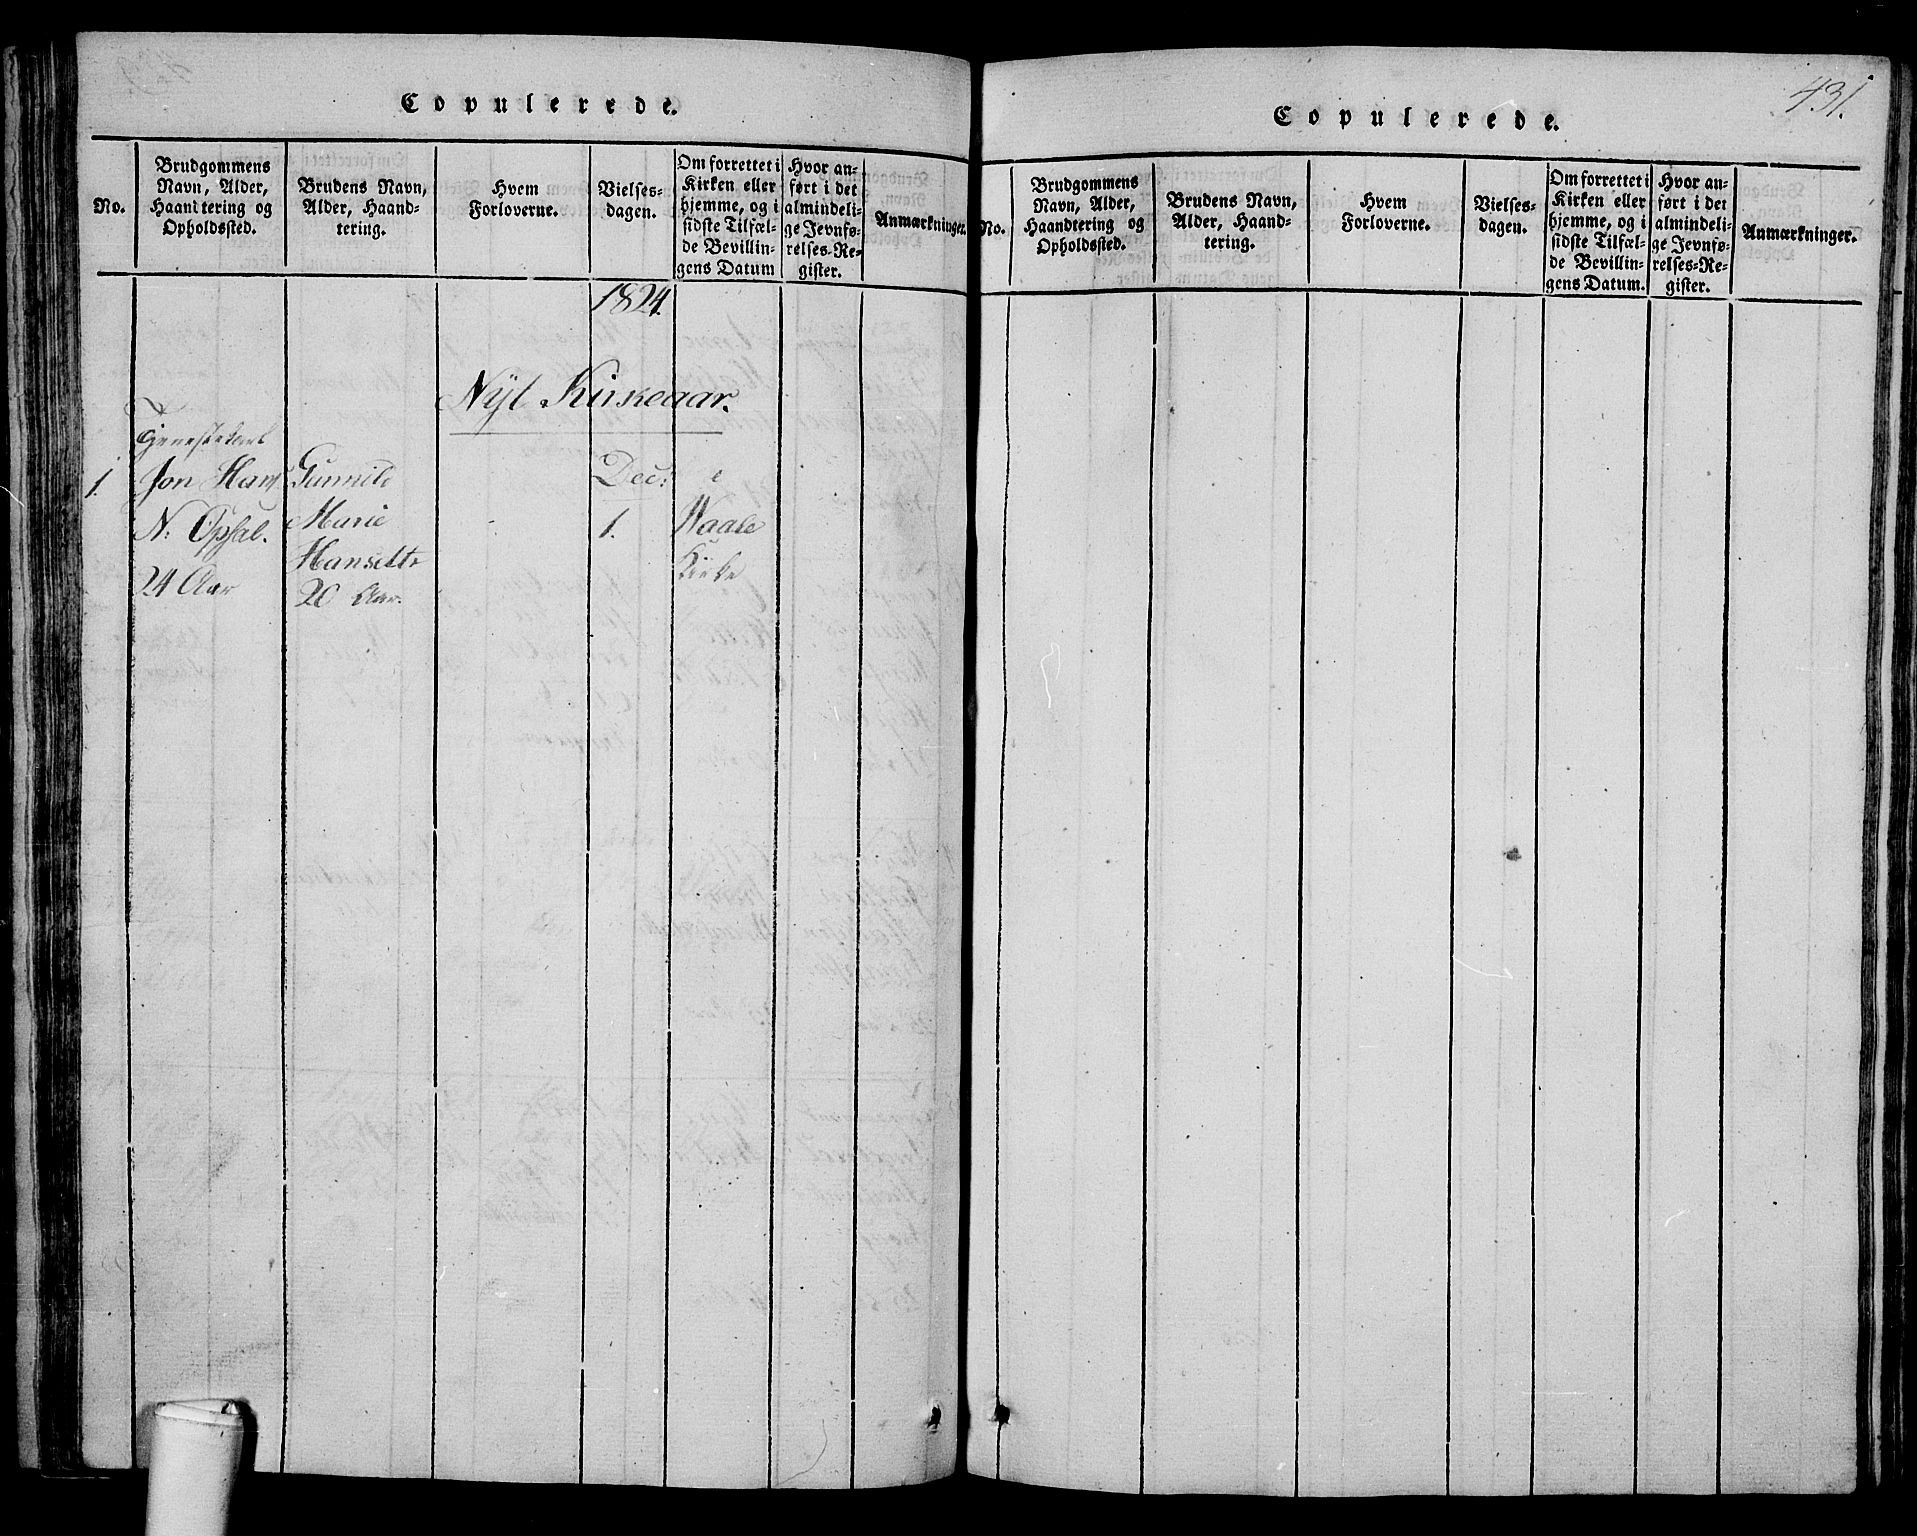 Copulerede.
No.
Brudgommens
Navn, Alder,
Haandtering og
Opholdssted.
Brudens Navn,
Alder, Haand-
tering.
Hvem
Forloverne.
Vielses-
dagen.
Om forrettet i
Kirken eller
hjemme, og i
sidste Tilfæl-
de Bevillin-
gens Datum
Hvor an-
ført i det
almindeli-
ge Jevnfø-
relses-Re-
gister.
Anmærkninger.
1824.
Nÿt Kirkeaar.
1.
Jon Hans
N: Opsal.
24 Aar
Gunnild
Marie
Hansdttr
20 Aar.
Dec:
1.
Waale
Kirke
431.
Copulerede.
No.
Brudgommens
Navn, Alder,
Haandtering og
Opholdssted.
Brudens Navn,
Alder, Haand-
tering.
Hvem
Forloverne.
Vielses-
dagen.
Om forrettet i
Kirken eller
hjemme, og i
sidste Tilfæl-
de Bevillin-
gens Datum.
Hvor an-
ført i det
almindeli-
ge Jevnfø-
relses-Re-
gister.
Anmærkninger.